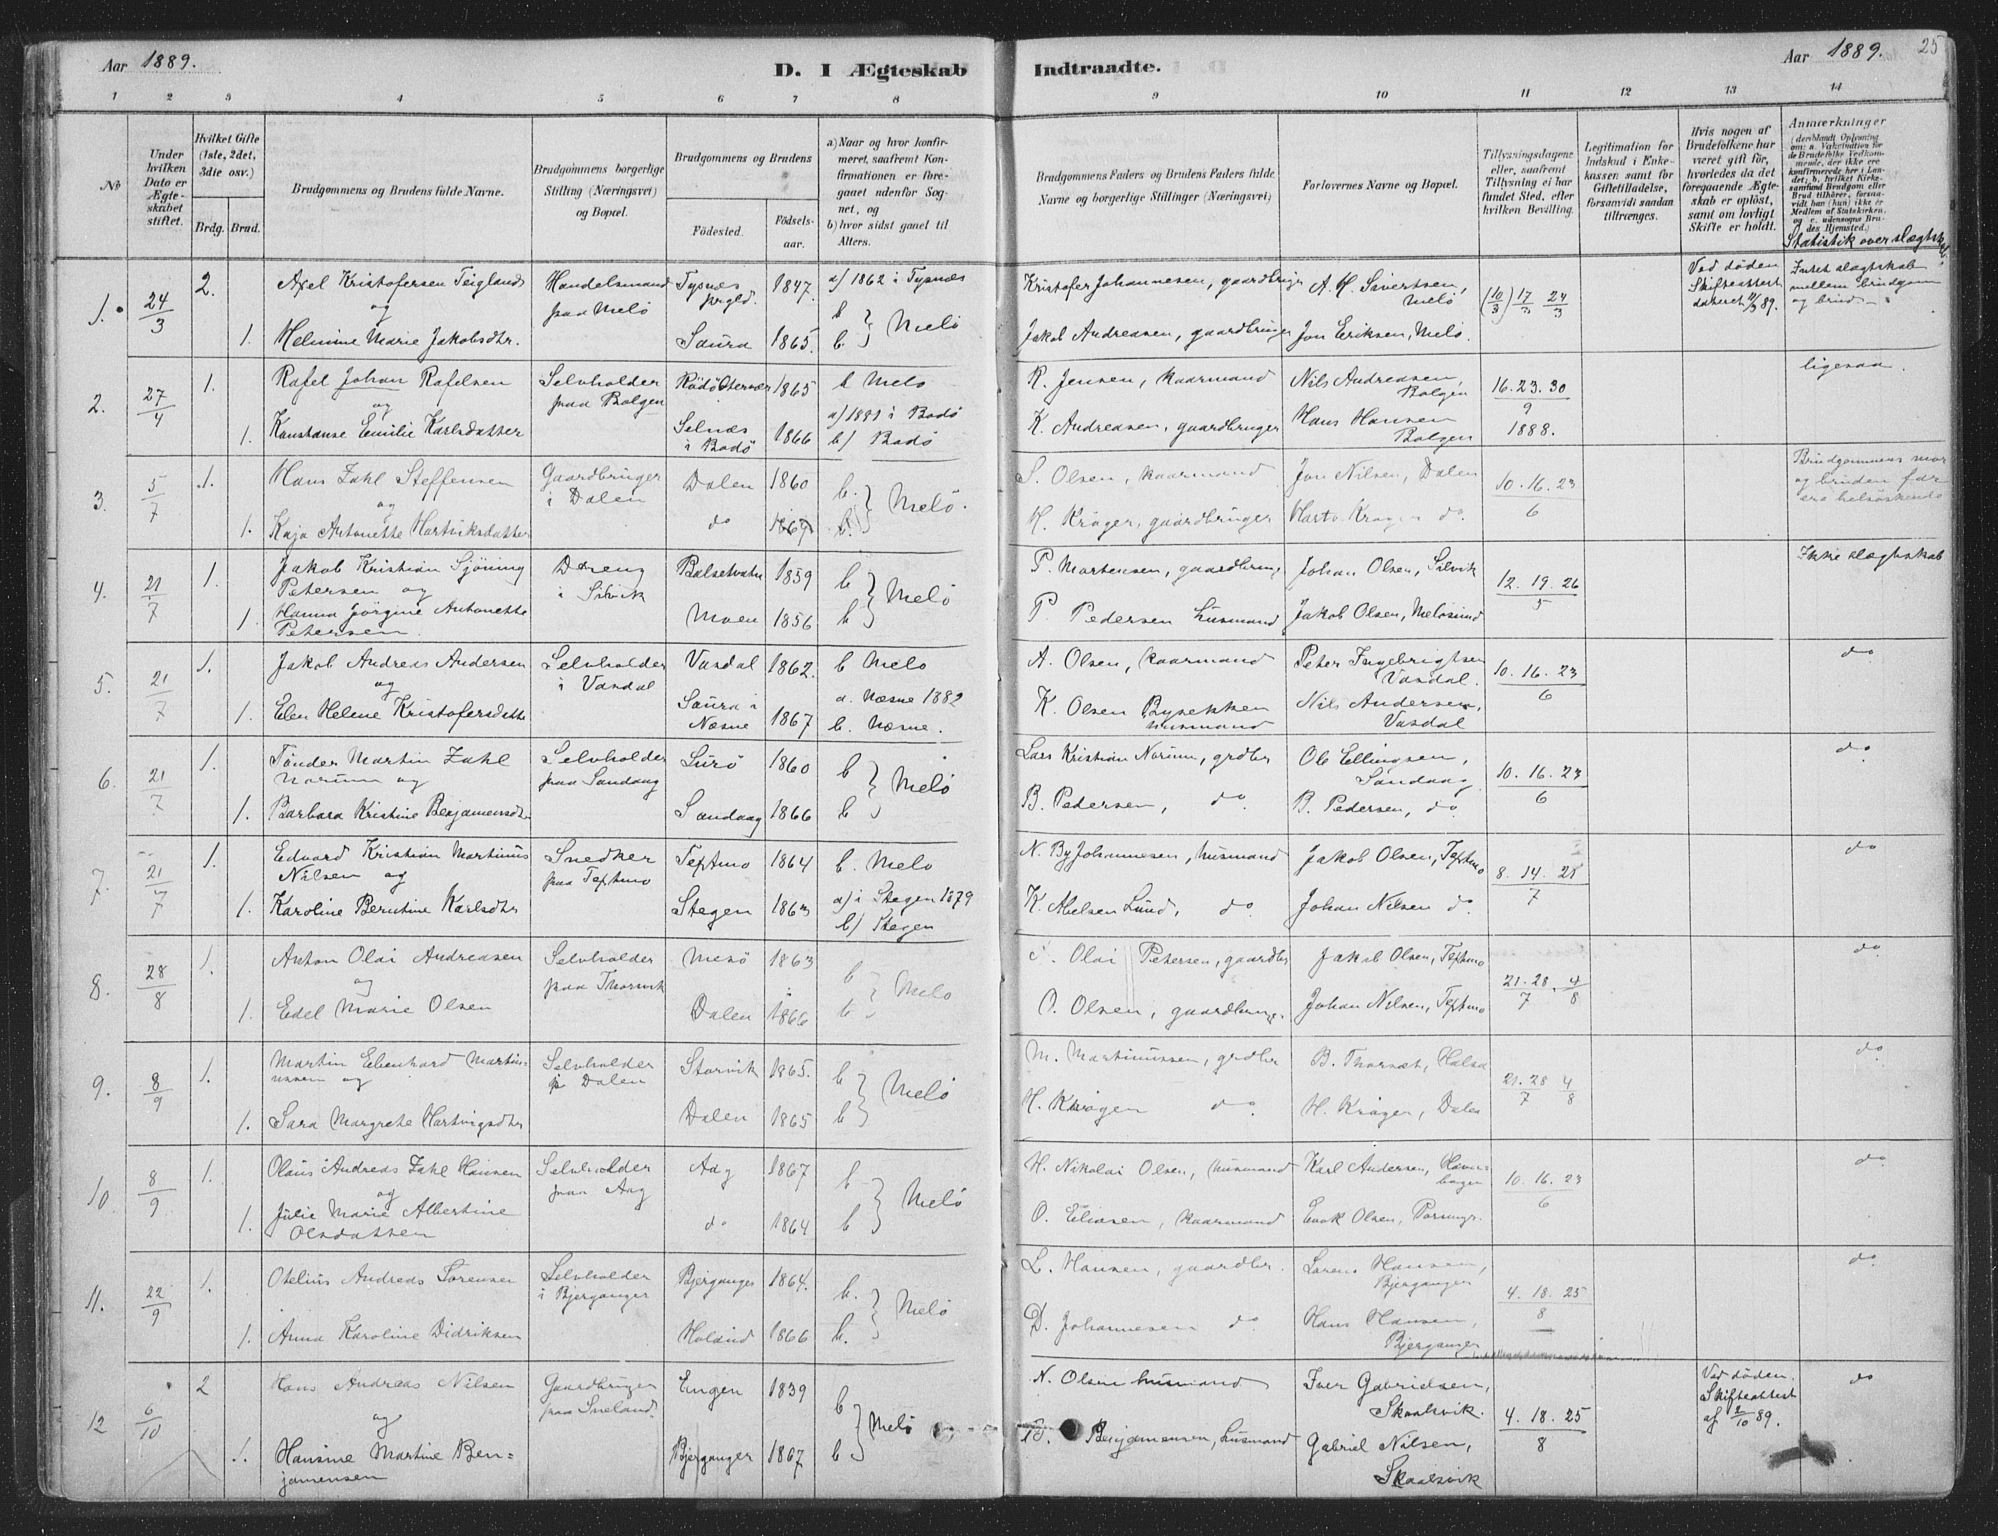 Aar 1889.
D. I Ægteskab Indtraadte.
Aar 1889. 25
1 2 3 4 5 6 7 8 9 10 11 12 13 14
No
Under hvilken Dato er Ægteskabet stiftet.
Hvilket Gifte (1ste, 2det, 3die osv.)
Brdg. Brud.
Brudgommens og Brudens fulde Navne.
Brudgommens borgerlige Stilling (Næringsvei) og Bopæl.
Brudgommens og Brudens
Fødested.
Fødselsaar.
a) Naar og hvor konfirmeret, saafremt Konfirmationen er foregaaet udenfor Sognet, og
b) hvor sidst ganet til Alters.
Brudgommens Faders og Brudens Faders fulde Navne og borgerlige Stillinger (Næringsvei)
Forlovernes Navne og Bopæl.
Tillysningsdagene eller, saafremt Tillysning ei har fundet Sted, efter hvilken Bevilling.
Legitimation for Indskud i Enkekassen samt for Giftetilladelse, forsaavidt saadan tiltrænges.
Hvis nogen af Brudefolkene har været gift før, hvorledes da det foregaaende Ægteskab er opløst, samt om lovligt Skifte er holdt.
Anmærkninger
Statistik over slægtsk.
1. 24/3 2. Axel Kristofersen Teigland Handelsmand Tysnes 1847. a/ 1862 i Tysnæs Kristofer Johannesen, gaardbruger A. H. Sivertsen, (10/3) 17/3 24/3 Ved døden Intet slægtskab
og paa Melø prgld. b } Melø Melø Skifteattest mellem brudgom
1. Helmine Marie Jakobsdtr. Saura 1865. b. Jakob Andreasen, gaardbruger Jon Eriksen, Melø. og brud
2. 27/4 1. Rafel Johan Rafelsen Selvholder Rødø 1865 b Melø R. Jensen, kaarmand Nils Andreasen, 16. 23. 30 ligesaa.
og paa Bolgen a) 1881 i Bodø Bolgen 9
1. Konstanse Emilie Karlsdatter Selnæs i Bodø 1866 b) Bodø K. Andreasen, gaardbruger Hans Hansen Bolgen 1888.
3. 5/7 1. Hans Zahl Steffensen Gaardbruger Dalen 1860 b. } Melø. S. Olsen, kaarmand Jon Nilsen, Dalen 10. 16. 23 Brudgommens mor
og i Dalen 6 og brudens far
1. Kaja Antonette Hartviksdatter do 1867 b. H. Krøger, gaardbruger do. ere helsøskende
4. 21/7 1. Jakob Kristian Sjöning Dreng 1859 b } Melø P. Mortensen, gaardbruge Johan Olsen, Selvik 12. 19. 26 Ikke slægtskab
Petersen og i Silvik 5
1. Hanna Jörgine Antonette Moen 1856 b P Pedersen husmand Jakob Olsen, Meløsund
Petersen.
5. 21/7 1. Jakob Andreas Andersen Selvholder Vasdal 1862. b Melø A. Olsen, kaarmand Peter Ingebrigtsen 10. 16. 23 do
og i Vasdal a. Næsne 1882 Vasdal. 6
1. Elen Helene Kristofersdatte Saura i Næsne 1867 b. Næsne. K. Olsen husmand Nils Andersen, Vasdal
6. 21/7 1. Tönder Martin Zahl Selvholder Lurø 1860 b } Melø Lars Kristian Norum, grdbr Ole Ellingsen, 10. 16. 23 do
Norum og paa Sandaag Sandaag 6
1. Barbara Kristine Benjamensdtr Sandaag 1866 b B. Pedersen, do B. Pedersen, do
7. 21/7 1. Edvard Kristian Martinus Snedker Teftmo 1864 b. Melø N. By Johannesen, husmand Jakob Olsen, Teftmo 8. 14. 28 do
Nilsen og paa Teftmo 7
1. Karoline Berntine Karlsdtr Stegen 1863 a) i Stegen 1879 K. Nielsen Lund, do Johan Nilsen do
b) Stegen
8. 28/8 1. Anton Olai Andreasen Selvholder Mesø 1863 b } Melø Olai Petersen, gaardbr Jakob Olsen, Teftmo 21. 28/7. 4/8 do
og paa Thorsvik
1. Edel Marie Olsen Dalen 1866 b O. Olsen, gaardbruge. Johan Nilsen, Teftmo
9. 8/9 1. Martin Ebenhard Martin- Selvholder Storvik 1865. b } Melø M. Martinussen, grdbr B. Thornæs, Halsa 21. 28/7 4/8 do
ussen og p. Dalen
1. Sara Margrete Hartvigsdtr Dalen 1865 b H. Krøgen do H. Krøger, Dalen
10. 8/9 1. Olaus Andreas Zahl Hansen Selvholder Aag 1867 b } Melø H. Nikolai Olsen, husmand Karl Andersen, 10. 16. 23 do
og paa Aag 6
1. Julie Marie Albertine do 1864 b O. Eliasen, kaarmand Olsen,
Olsdatter
11. 22/9 1. Otelius Andreas Sørensen Selvholder Bjerganger 1864. b. } Melø L. Hansen, gaardbr. Hansen, 4. 18. 25 do
i Bjerganger Bjerganger 8
1. Anna Karoline Didriksen Holand 1866 b. D. Johannesen do Hans Hansen, Bjerganger
12 6/10 2 Hans Andreas Nilsen Gaardbruger Engen 1839 b } Melø N. Olsen husmand Iver Gabrielsen, 4. 18. 25 Ved døden. do
og paa Skaalsvik. 8 Skifteattest
1. Hansine Martine Ben= Bjerganger 1867 b Benjamensen, husmand Gabriel Nilsen, af 2/10 89.
jamensen Skaalsvik